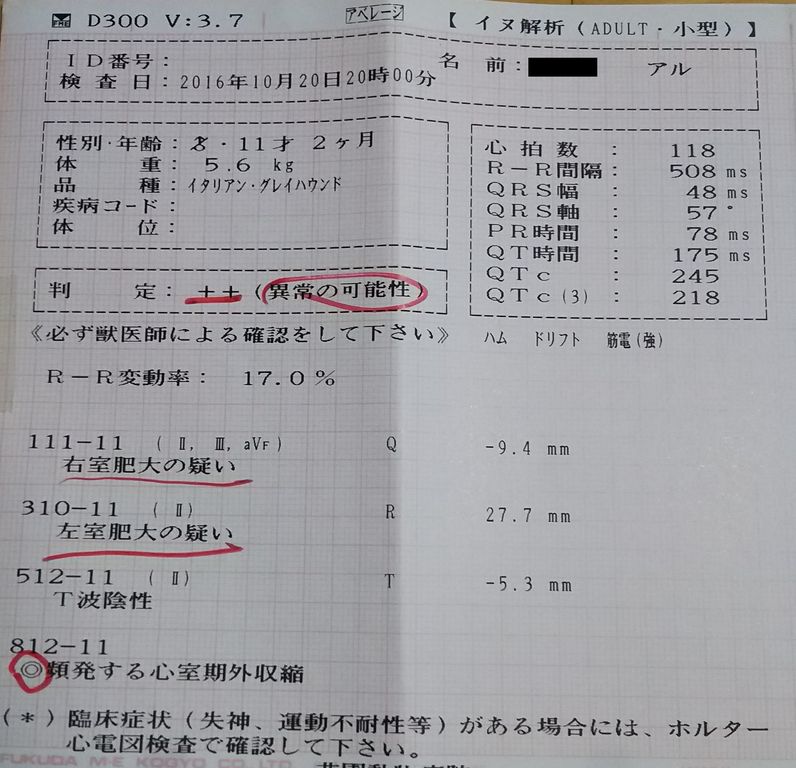 D300 V:3.7
アベレージ
【 イヌ解析(ADULT・小型) 】
ID番号:
名 前: アル
検査日:2016年10月20日20時00分
性別・年齢: ・11才 2ヶ月
体 重: 5.6 kg
品 種:イタリアン・グレイハウンド
疾病コード:
体 位:
心拍数 : 118
R-R間隔: 508 ms
QRS幅 : 48 ms
QRS軸 : 57 °
PR時間 : 78 ms
QT時間 : 175 ms
QTc : 245
QTc(3) : 218
判 定: ++ (異常の可能性)
《必ず獣医師による確認をして下さい》
ハム ドリフト 筋電(強)
R-R変動率: 17.0%
111-11 (Ⅱ, Ⅲ, aVF) Q -9.4 mm
右室肥大の疑い
310-11 (Ⅱ) R 27.7 mm
左室肥大の疑い
512-11 (Ⅱ) T -5.3 mm
T波陰性
812-11
◎頻発する心室期外収縮
(*)臨床症状(失神、運動不耐性等)がある場合には、ホルター
心電図検査で確認して下さい。
FUKUDA M-E KOGYO CO., LTD.